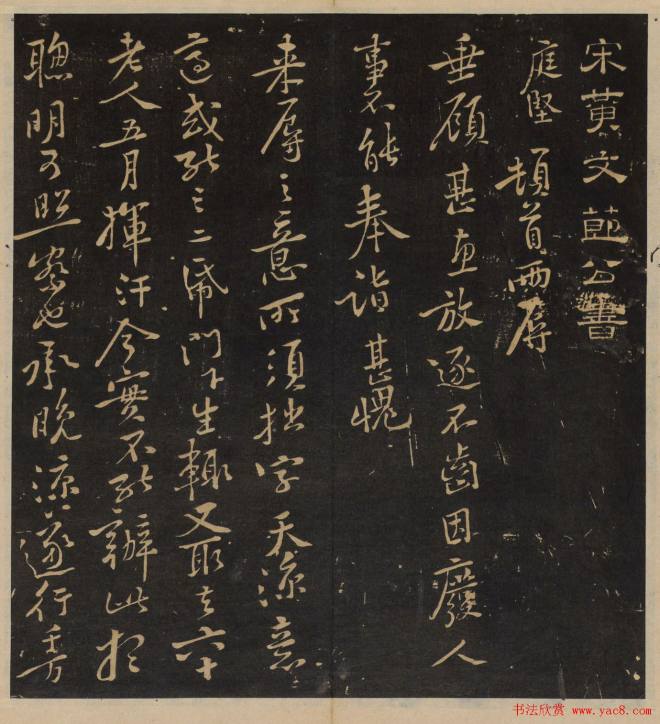 宋黄文節公書
庭堅頓首兩辱
垂顧甚惠放逐不齒因廢人
事不能奉詣甚愧
来辱之意所須拙字天涼意
適或能三二紙門下生輒又取去六十
老人五月揮汗今實不能辦此想
聰明可照察也承晚涼遂行千万
书法欣赏 www.yac8.com